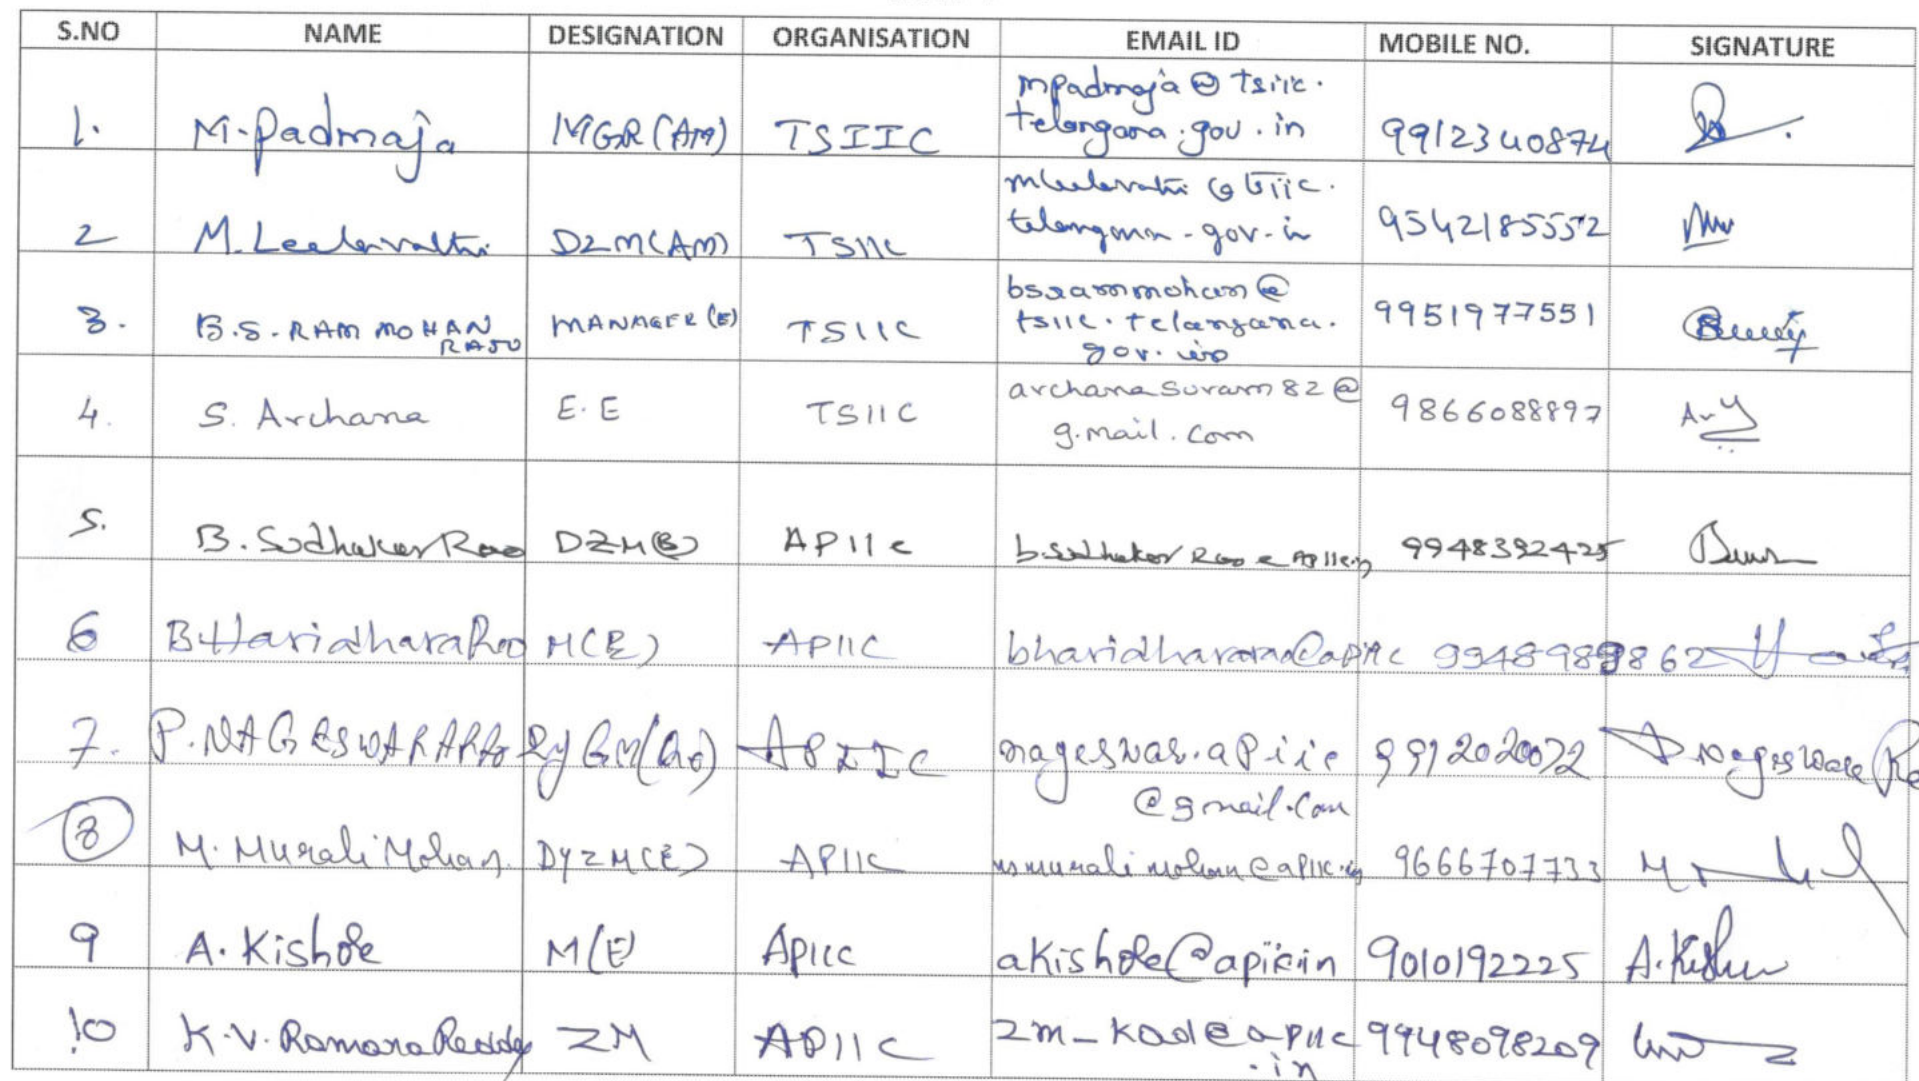 S.NO NAME DESIGNATION ORGANISATION EMAIL ID MOBILE NO. SIGNATURE
1. M. Padmaja MGR (AM) TSIIC mpadmaja@tsiic. 9912340874
telangana.gov.in
2 M. Leelavathi DZM(AM) TSIIC mleelavathi@tsiic. 9542185552
telangana.gov.in
3. B.S. RAM MOHAN MANAGER (E) TSIIC bsrammohan@ 9951977551
RAJU tsiic.telangana.
gov.in
4. S. Archana E.E TSIIC archanasuram82@ 9866088897
gmail.com
5. B. Sudhakar Rao DZM(E) APIIC b.sudhakarRao@APIIC.in 9948392425
6 B Haridhara Rao M(E) APIIC bharidhararao@apiic 9948989862
7. P. NAGESWARARAO Dy GM( ) APIIC nageswar.apiic 9912020072 P Nageswara Ra
@gmail.com
8 M. Murali Mohan DyZM(E) APIIC msmuralimohan@apiic.in 9666707733
9 A. Kishore M(E) APIIC akishore@apiic.in 9010192225 A. Kishore
10 K.V. Ramana Reddy ZM APIIC zm_kad@apiic 9948098209
.in